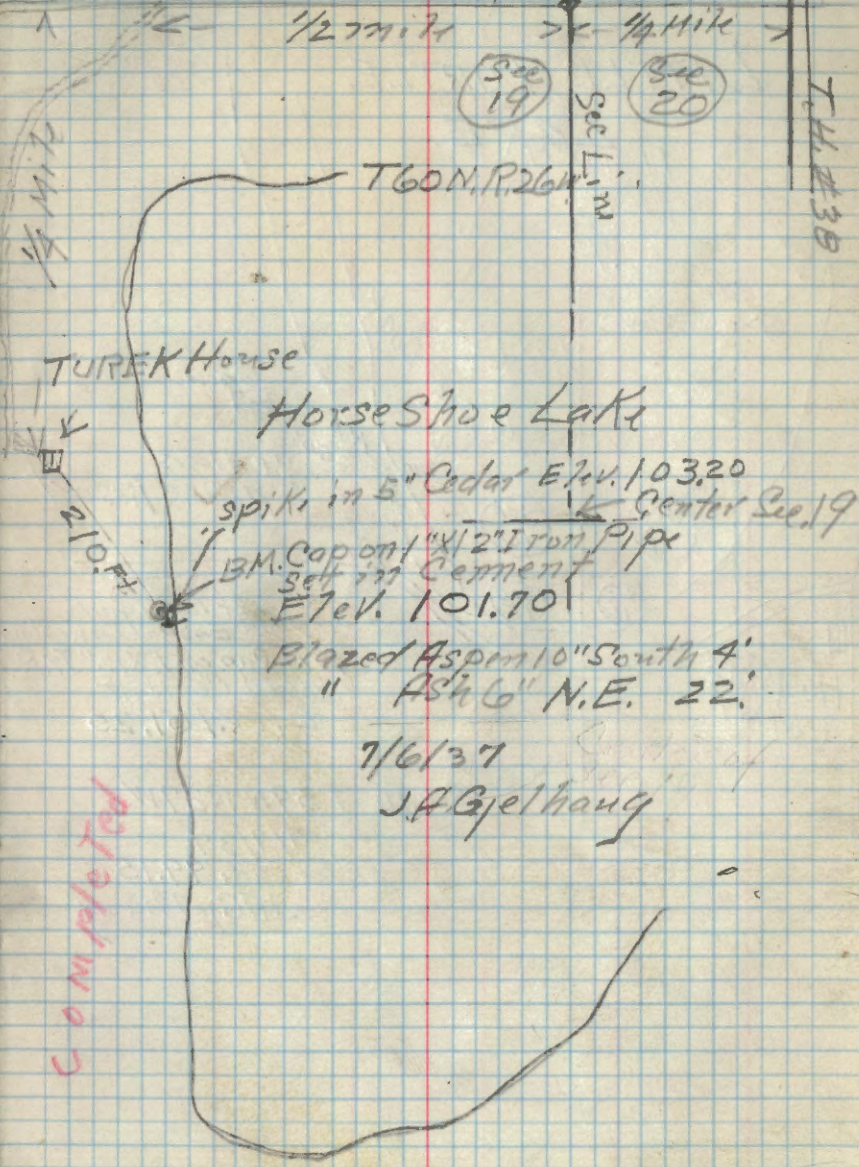 1/2 mile
1/4 Mile
Sec
19
Sec
20
Sec Line
T.H. #38
1/4 Mile
T60N.R.26W.
TUREK House
HorseShoe Lake
spike in 5" Cedar Elev. 103.20
Center Sec. 19
210. Ft
BM. Cap on 1"X12" Iron Pipe
Set in Cement
Elev. 101.70
Blazed Aspen 10" South 4'
" Ash 6" N.E. 22'
7/6/37
J.A Gjelhaug
Completed